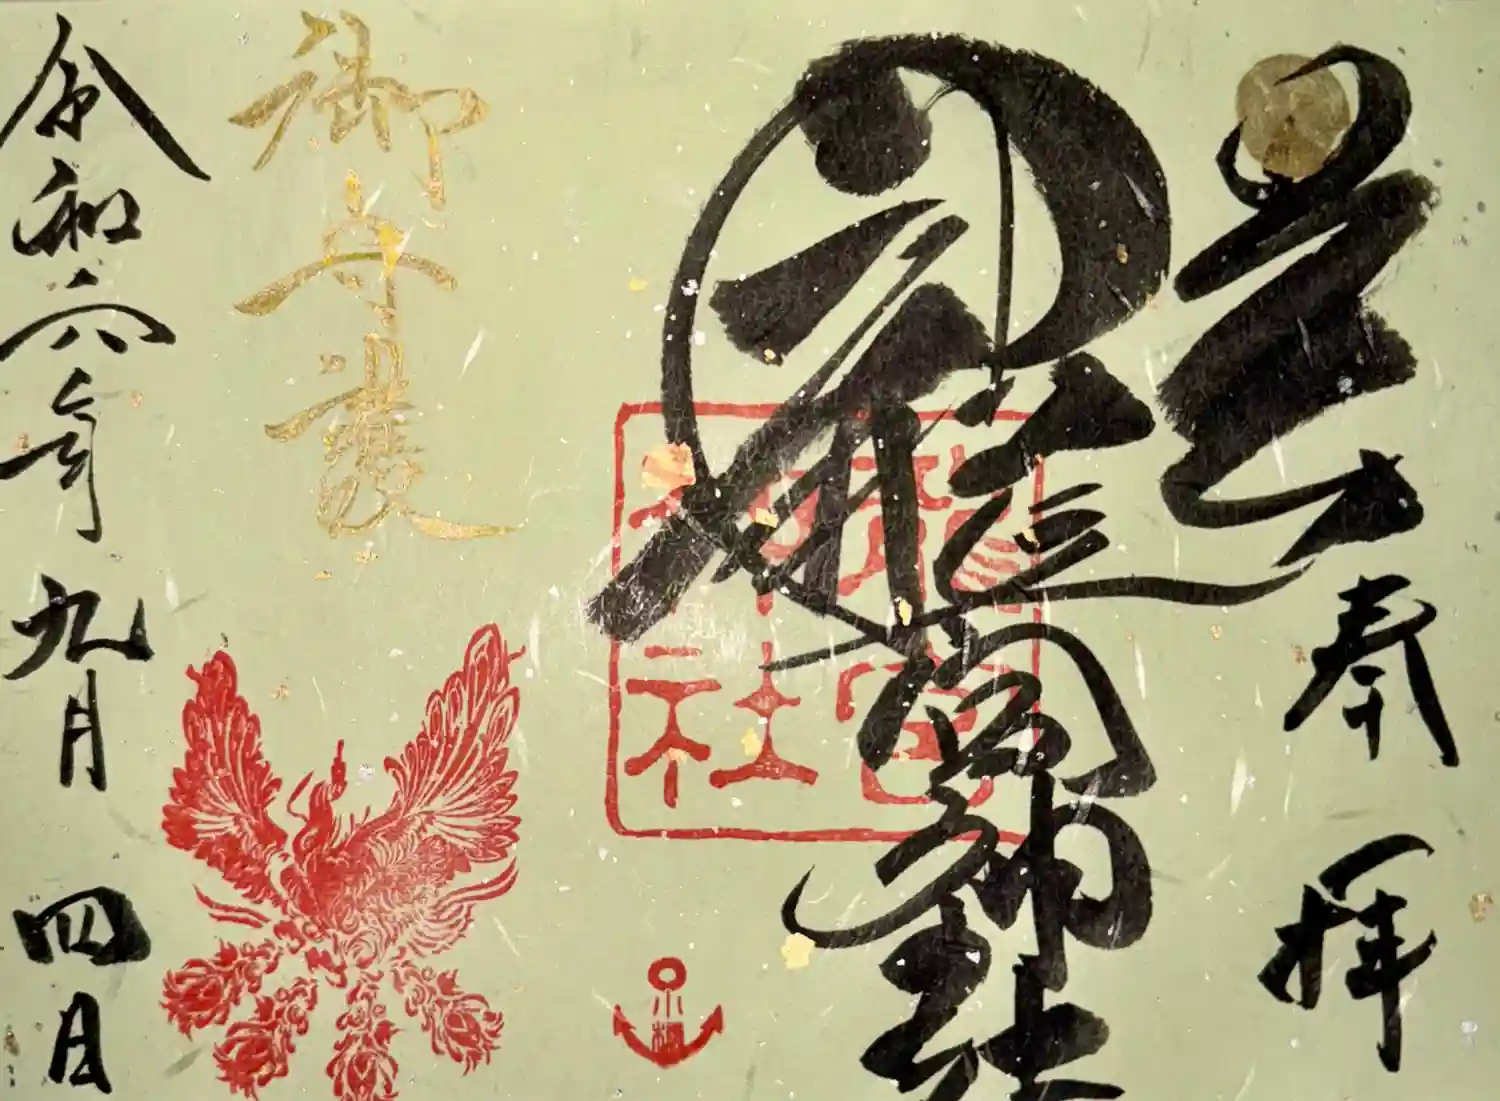 奉拝
龍宮神社
龍宮
神社
小樽
御守護
令和六年九月四日